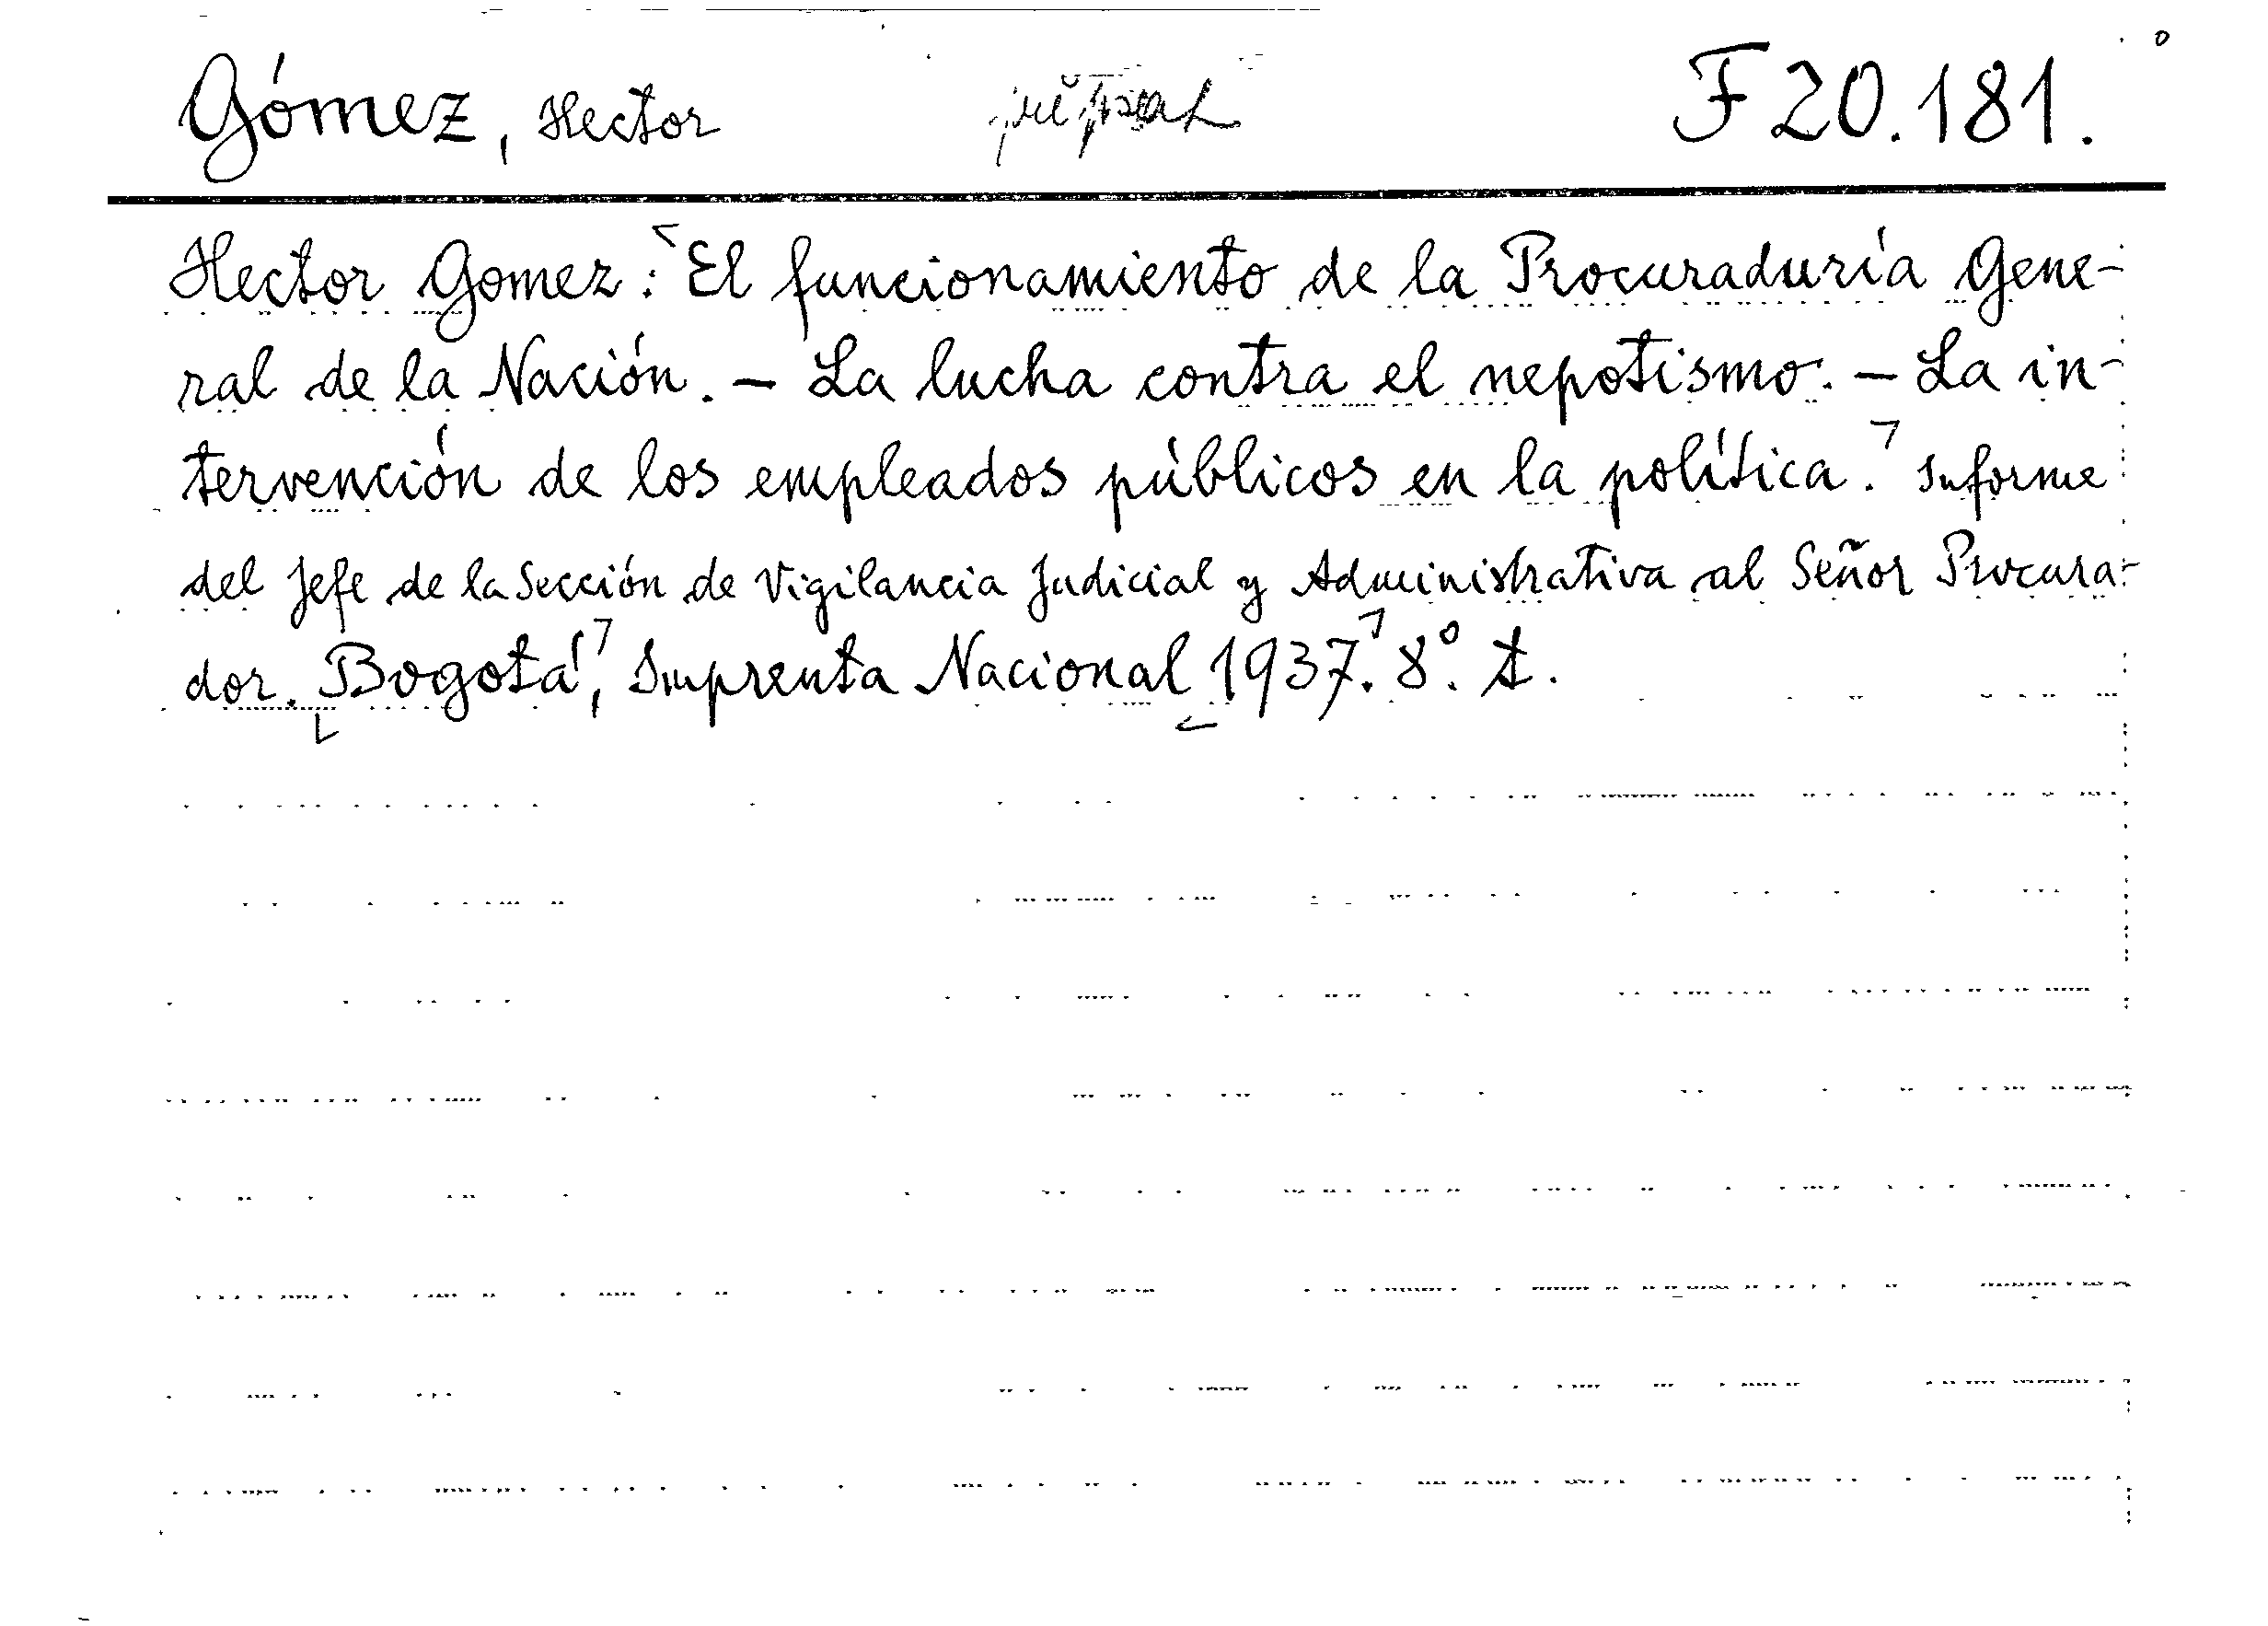 Gómez, Hector F 20.181.
Hector Gomez: El funcionamiento de la Procuraduría Gene-
ral de la Nación. — La lucha contra el nepotismo. — La in-
tervención de los empleados públicos en la política. Informe
del Jefe de la Sección de Vigilancia Judicial y Administrativa al Señor Procura-
dor. Bogotá, Imprenta Nacional 1937. 8°. A.